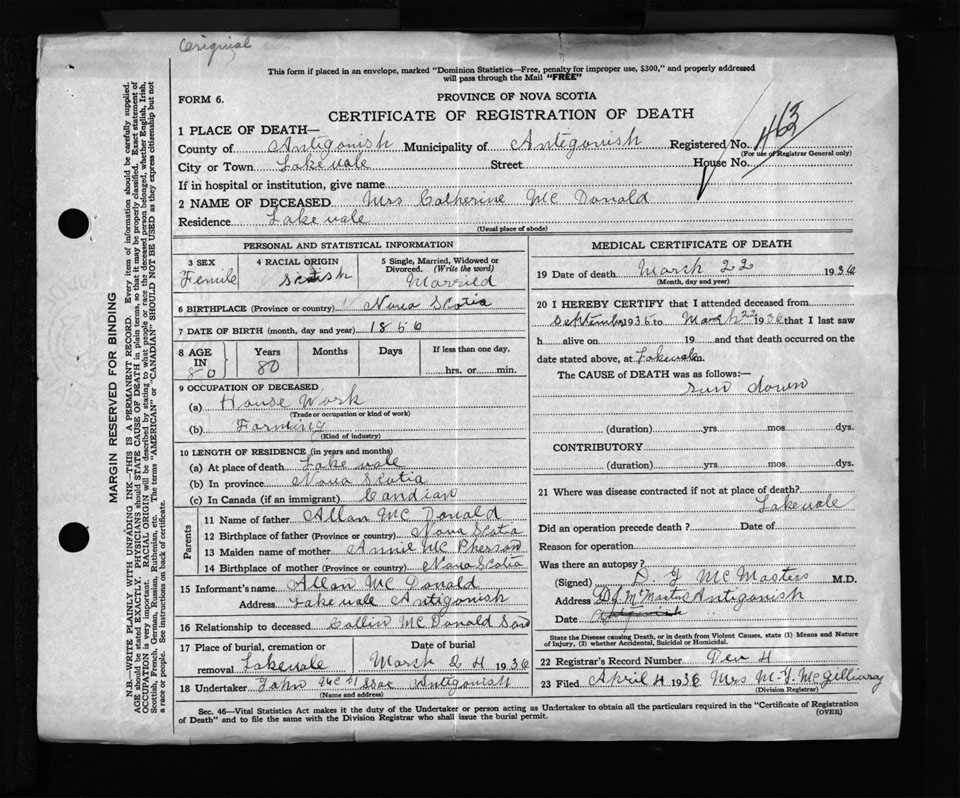 Original
This form if placed in an envelope, marked "Dominion Statistics—Free, penalty for improper use, $300," and properly addressed
will pass through the Mail "FREE"
FORM 6.
PROVINCE OF NOVA SCOTIA
CERTIFICATE OF REGISTRATION OF DEATH
1 PLACE OF DEATH—
County of Antigonish Municipality of Antigonish Registered No. 463
(For use of Registrar General only)
City or Town Lakevale Street House No.
If in hospital or institution, give name
2 NAME OF DECEASED Mrs Catherine Mc Donald
Residence Lakevale
(Usual place of abode)
PERSONAL AND STATISTICAL INFORMATION
3 SEX 4 RACIAL ORIGIN 5 Single, Married, Widowed or Divorced. (Write the word)
Femile Married
6 BIRTHPLACE (Province or country) Nova Scotia
7 DATE OF BIRTH (month, day and year) 1856
8 AGE IN Years Months Days If less than one day,
80 80 hrs. or min.
9 OCCUPATION OF DECEASED
(a) House Work
(Trade or occupation or kind of work)
(b) Farming
(Kind of industry)
10 LENGTH OF RESIDENCE (in years and months)
(a) At place of death Lake vale
(b) In province Nova Scotia
(c) In Canada (if an immigrant) Candian
Parents
11 Name of father Allan Mc Donald
12 Birthplace of father (Province or country) Nova Scotia
13 Maiden name of mother Annie Mc Pherson
14 Birthplace of mother (Province or country) Nova Scotia
15 Informant's name Allan Mc Donald
Address Lakevale Antigonish
16 Relationship to deceased Collin Mc Donald Son
17 Place of burial, cremation or removal Lakevale Date of burial March 24 1936
18 Undertaker John Antigonish
(Name and address)
MEDICAL CERTIFICATE OF DEATH
19 Date of death March 22 1936
(Month, day and year)
20 I HEREBY CERTIFY that I attended deceased from
September 1935 to March 22 1936 that I last saw
h alive on 19 and that death occurred on the
date stated above, at Lakevale m.
The CAUSE of DEATH was as follows:—
run down
(duration) yrs mos dys.
CONTRIBUTORY
(duration) yrs. mos. dys.
21 Where was disease contracted if not at place of death?
Lakevale
Did an operation precede death ? Date of
Reason for operation
Was there an autopsy?
(Signed) D. J McMasters M.D.
Address D J McMasters Antigonish
Date
State the Disease causing Death, or in death from Violent Causes, state (1) Means and Nature
of Injury, (2) whether Accidental, Suicidal or Homicidal.
22 Registrar's Record Number
23 Filed April 4 1936 Mrs M. J. McGillivray
(Division Registrar)
Sec. 46—Vital Statistics Act makes it the duty of the Undertaker or person acting as Undertaker to obtain all the particulars required in the "Certificate of Registration
of Death" and to file the same with the Division Registrar who shall issue the burial permit. (OVER)
MARGIN RESERVED FOR BINDING
N.B.—WRITE PLAINLY WITH UNFADING INK—THIS IS A PERMANENT RECORD. Every item of information should be carefully supplied.
AGE should be stated EXACTLY. PHYSICIANS should STATE CAUSE OF DEATH in plain terms, so that it may be properly classified. Exact statement of
OCCUPATION is very important. RACIAL ORIGIN will be described by stating to what people or race the deceased person belonged, whether English, Irish,
Scottish, French, German, Russian, Ruthenian, etc. The terms "AMERICAN" or "CANADIAN" SHOULD NOT BE USED as they express citizenship but not
a race or people. See instructions on back of certificate.